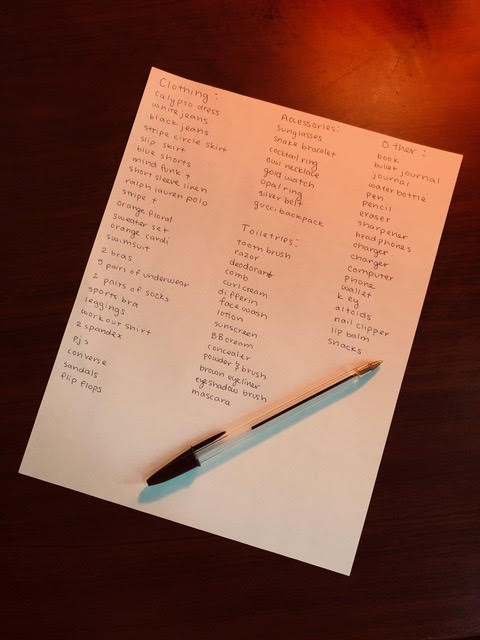 Clothing:
calypso dress
white jeans
black jeans
stripe circle skirt
slip skirt
blue shorts
mind funk t
short sleeve linen
ralph lauren polo
stripe t
orange floral
sweater set
orange cardi
swimsuit
2 bras
9 pairs of underwear
2 pairs of socks
sports bra
leggings
workout shirt
2 spandex
PJs
converse
sandals
flip flops
Accessories:
sunglasses
snake bracelet
cocktail ring
owl necklace
gold watch
opal ring
silver belt
gucci backpack
Toiletries:
tooth brush
razor
deodorant
comb
curl cream
differin
face wash
lotion
sunscreen
BB cream
concealer
powder & brush
brown eyeliner
eyeshadow brush
mascara
Other:
book
bullet journal
journal
water bottle
pen
pencil
eraser
sharpener
headphones
charger
charger
computer
phone
wallet
key
altoids
nail clipper
lip balm
snacks